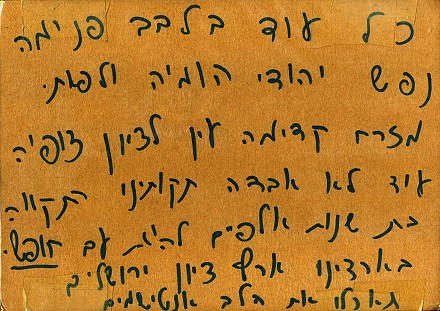 כל עוד בלבב פנימה
נפש יהודי הומיה ולפאת.
מזרח קדימה עין לציון צופיה
עוד לא אבדה תקותינו התקווה
בת שנות אלפים להיות עם חופשי.
בארצינו ארץ ציון ירושלים
את הלב אנטישמים